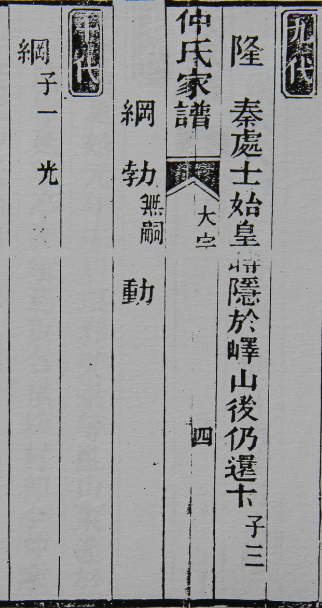 九代
隆 秦處士始皇時隱於嶧山後仍還卞 子三
仲氏家譜 大宗 四
綱 勃 無嗣 動
十代
綱 子一 光